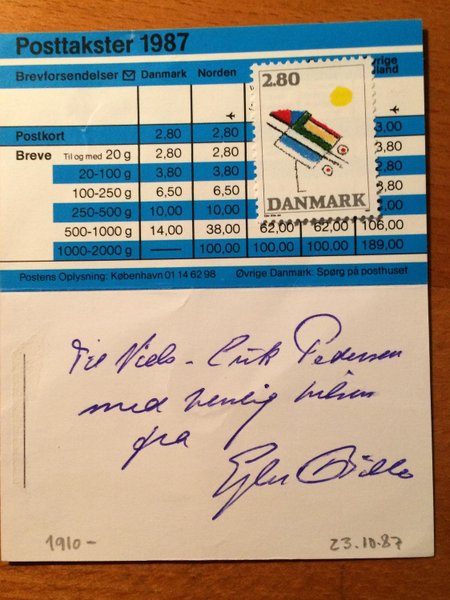 Posttakster 1987
Brevforsendelser Danmark Norden
Postkort 2,80 2,80 3,00
Breve Til og med 20 g 2,80 2,80 2,80
20-100 g 3,80 3,80 3,80
100-250 g 6,50 6,50
250-500 g 10,00 10,00
500-1000 g 14,00 38,00 62,00 62,00 106,00
1000-2000 g — 100,00 100,00 100,00 189,00
2.80
DANMARK
Postens Oplysning: København 01 14 62 98 Øvrige Danmark: Spørg på posthuset
Til Niels-Erik Pedersen
med venlig hilsen
fra
Ejler Bille
1910- 23.10.87